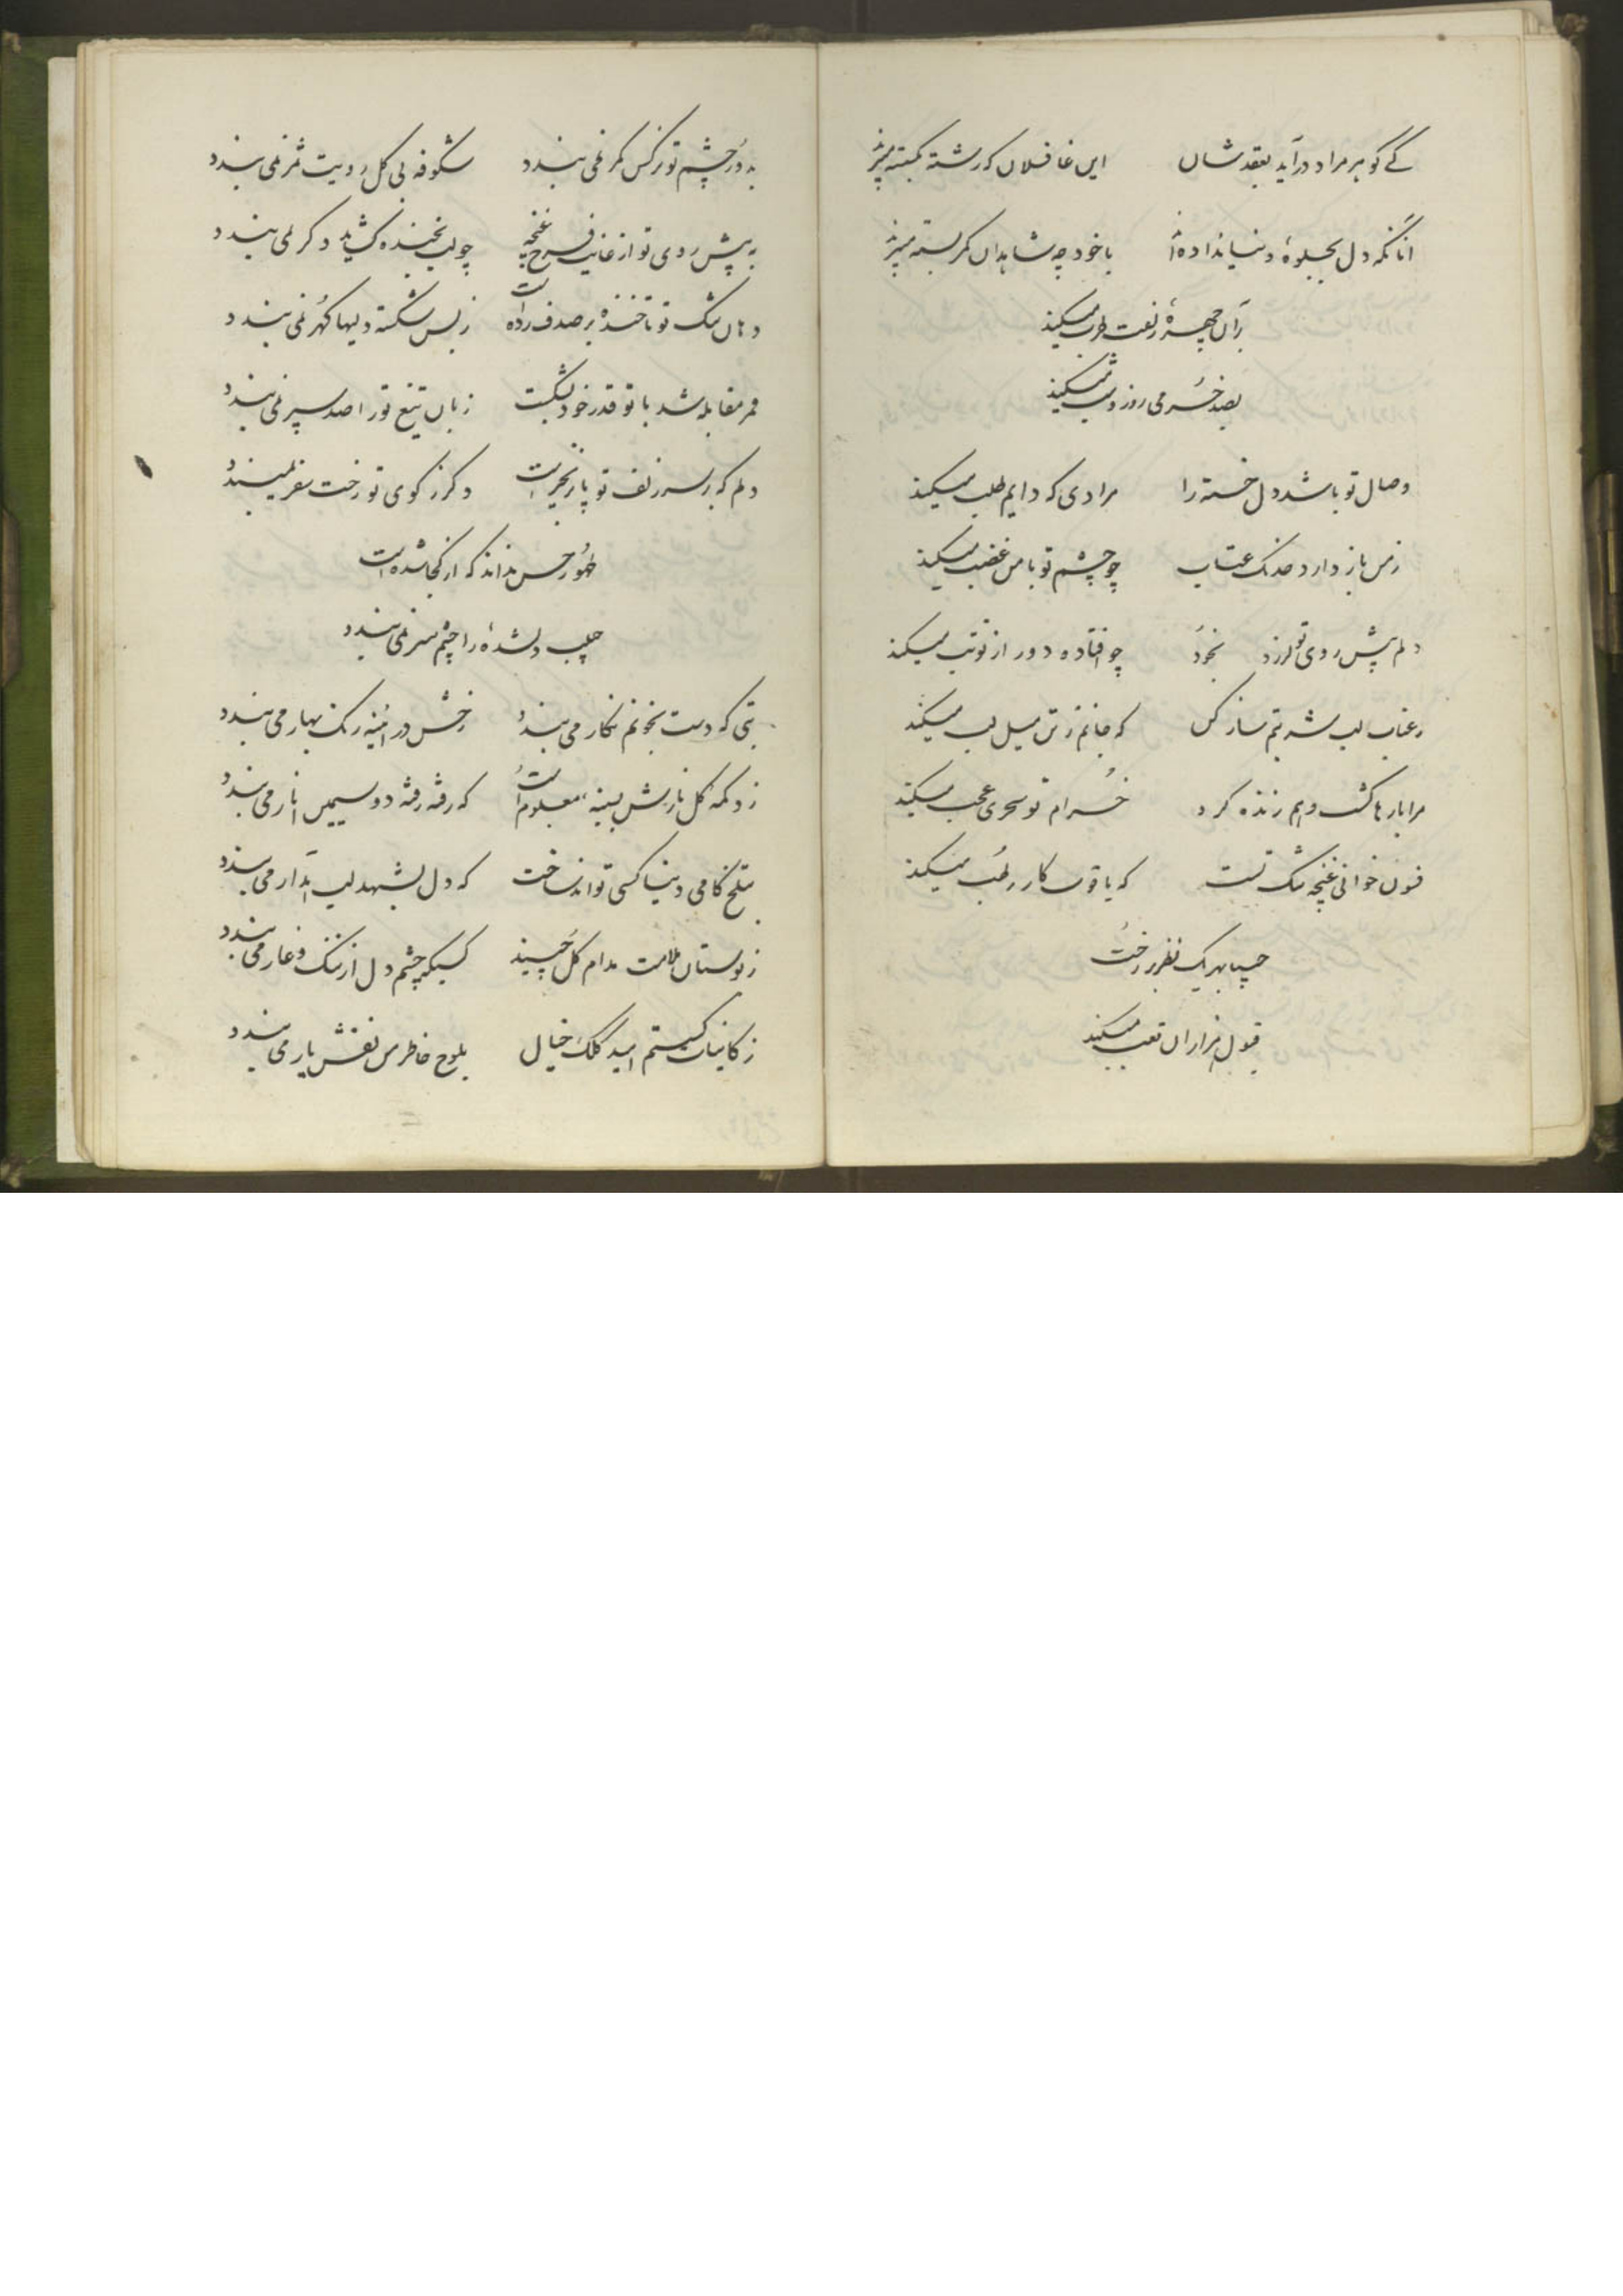 کے کوهر مراد درآید بعقد شان این غافلان که رشته
آنانکه دل بجلوهٔ دنیا نداده‌اند با خود چه شاهدان کمر بسته
بر آن چهره زلفت طرب میکند
بصد خرمی روز و شب میکند
وصال تو باشد دل خسته را مرادی که دایم طلب میکند
زمن باز دارد خدنک عتاب چو چشم تو با من غضب میکند
دلم پیش روی تو لرزد بخود چو افتاده دور از تو تب میکند
عناب لب شربتم ساز کن که جانم ز تن میل لب میکند
مرا بارها کشت و هم زنده کرد خرام تو سحری عجب میکند
فسون خوانی غنچه تنک تست که یاقوت کار رطب میکند
یک نظر بر رخت
قبول هزاران تعب میکند
به دور چشم تو نرکس کمر نمی بندد شکوفه بی کل رویت ثمر نمی بندد
به پیش روی تو از غایت فرح غنچه چو لب بخنده کشاید دکر نمی بندد
دهان تنک تو تا خنده بر صدف زده است ز بس شکسته دلیها کهر نمی بندد
قمر مقابله شد با تو قدر خود بشکست زبان تیغ تو را صد سپر نمی بندد
دلم که بر سر زلف تو پا بزنجیر است دکر ز کوی تو رخت سفر نمیبندد
ظهور حسن نداند که از کجا شده است
دلشده را چشم سر نمی بندد
بتی که دست بخونم نکار می بندد رخش در آینه رنک بهار می بندد
ز دکمه کل نازش بسینه معلوم است که رفته رفته دو سیمین انار می بندد
بتلخ کامی دنیا کسی تواند ساخت که دل بشهد لب آبدار می بندد
ز بوستان ملامت مدام کل چیند کسیکه چشم دل از ننک و عار می بندد
ز کاینات کسستم امید کلک خیال بلوح خاطر من نقش یار می بندد